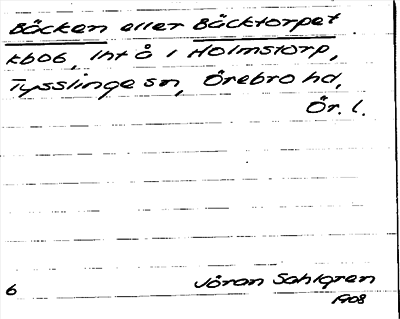 Bäcken eller Bäcktorpet
kbo6, Int å i Holmstorp,
Tysslinge sn, Örebro hd,
Ör. l.
6 Jöran Sahlgren
1908